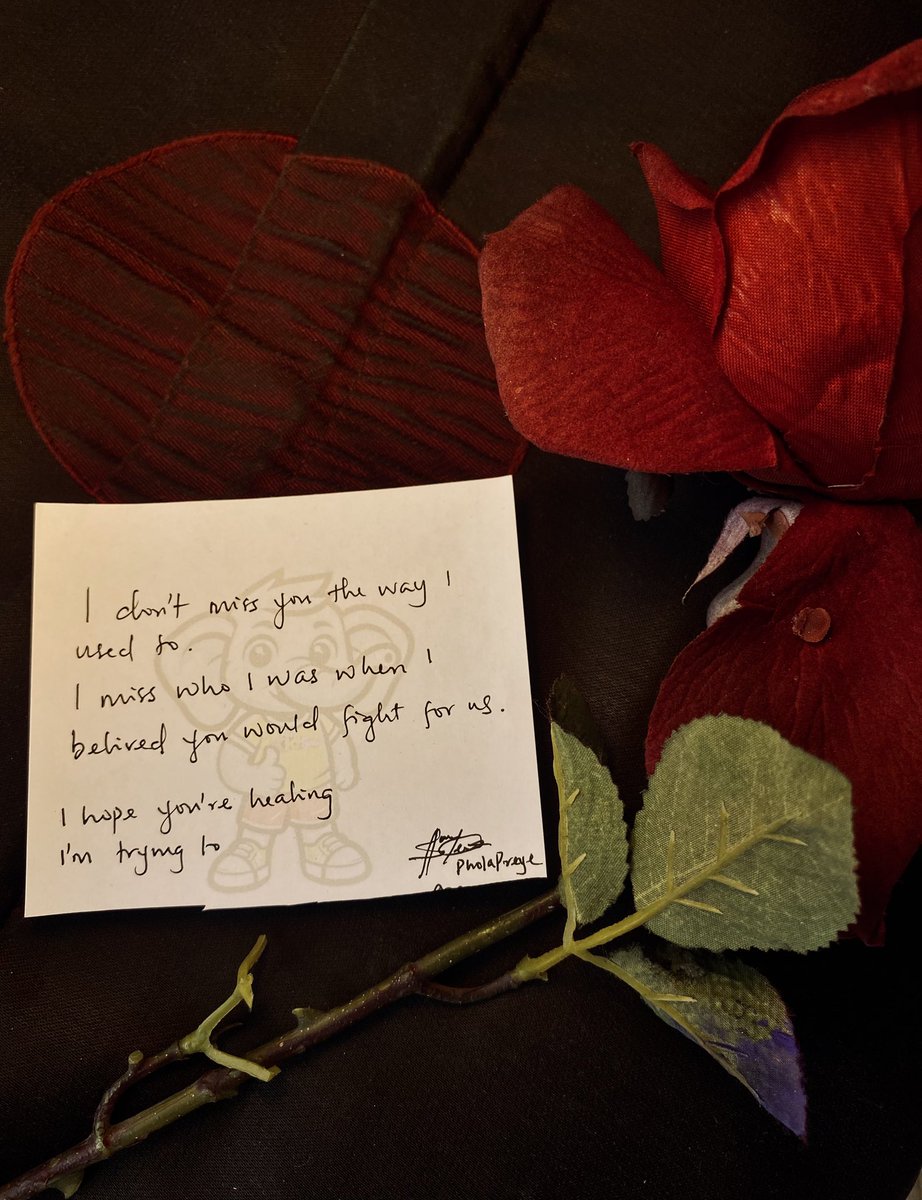 I don't miss you the way I
used to.
I miss who I was when I
belived you would fight for us.
I hope you're healing
I'm trying to
PholaPreye